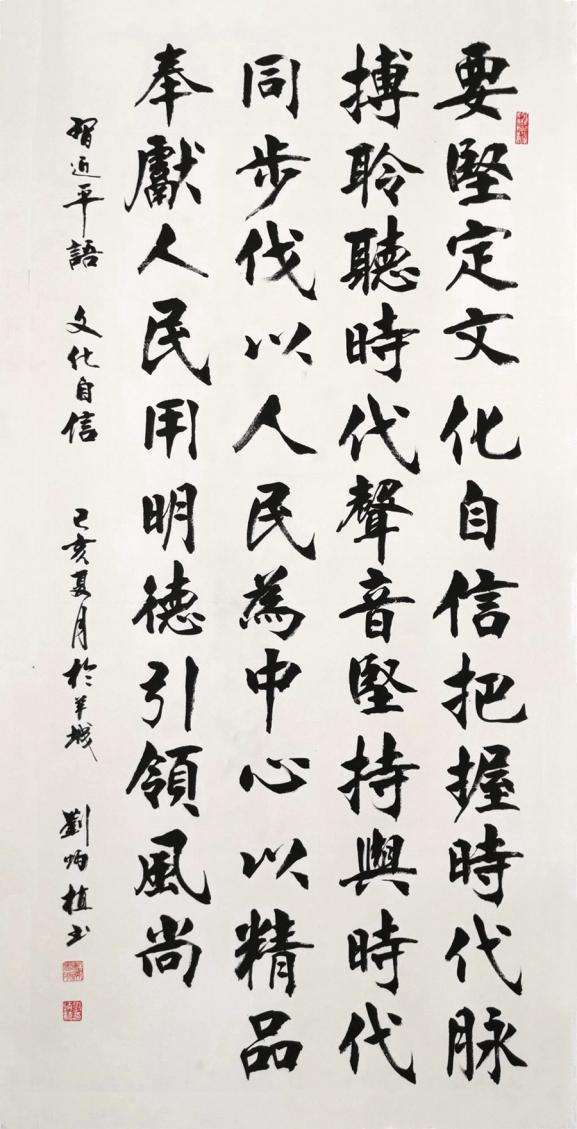 要堅定文化自信把握時代脉
搏聆聽時代聲音堅持與時代
同步伐以人民為中心以精品
奉獻人民用明德引領風尚
習近平語 文化自信 己亥夏月於羊城 劉炳植書